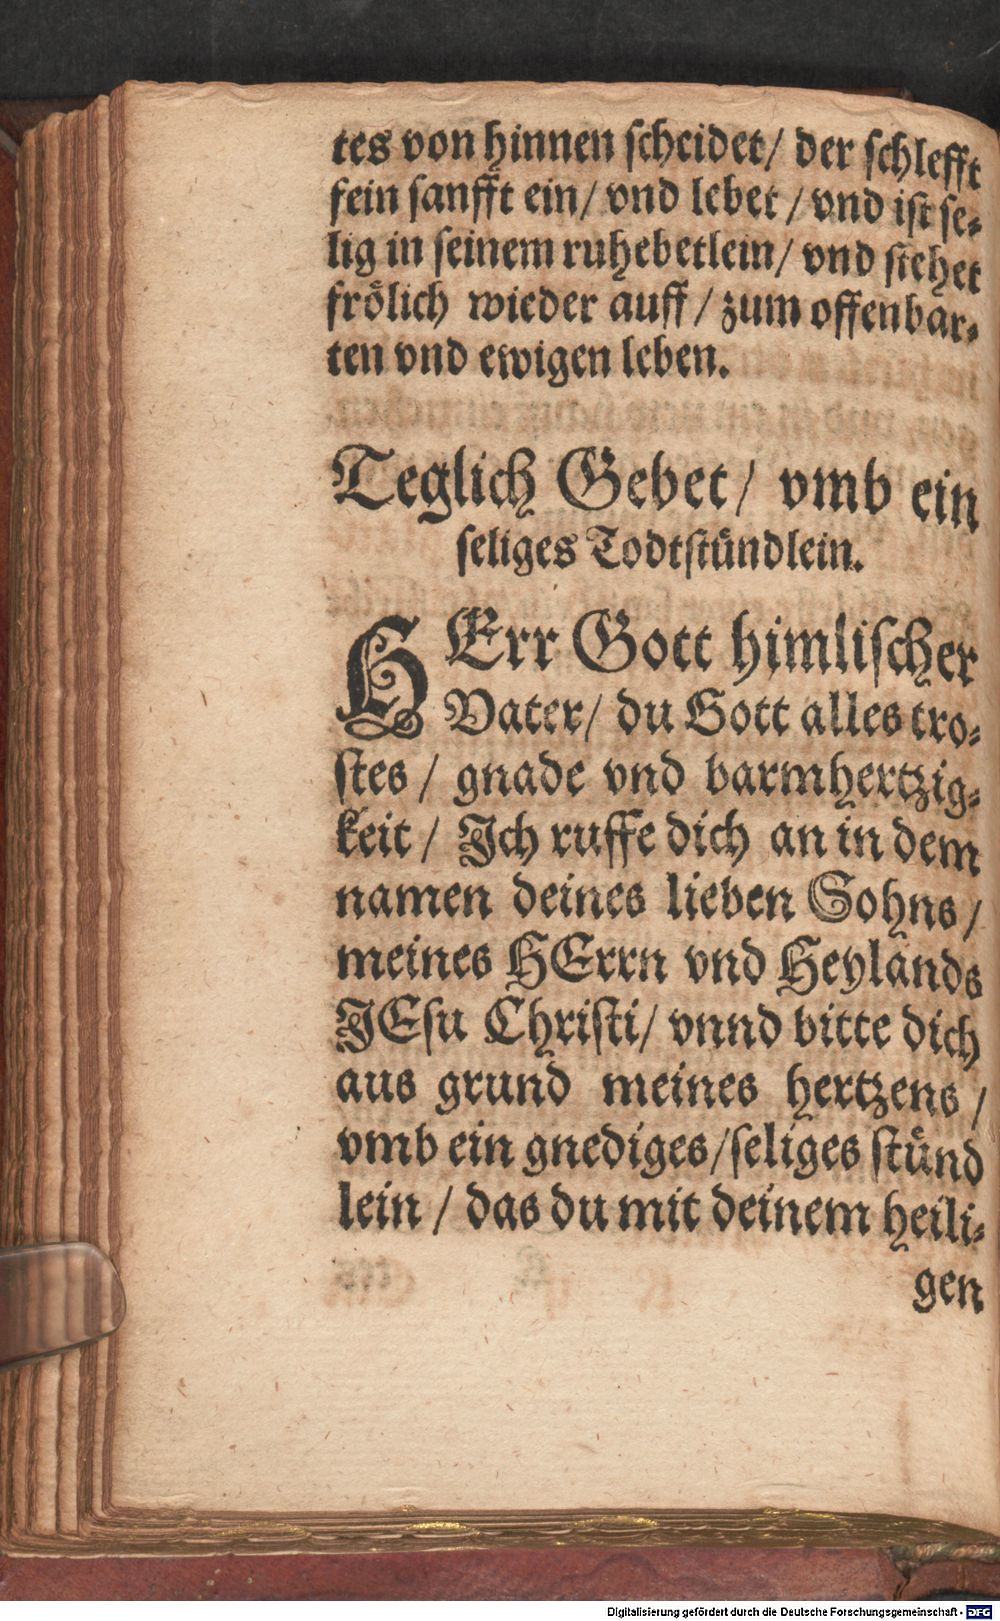 tes von hinnen scheidet/ der schlefft
fein sanfft ein/ vnd lebet / vnd ist se-
lig in seinem ruhebetlein/ vnd stehet
frölich wieder auff / zum offenbar-
ten vnd ewigen leben.
Teglich Gebet/ vmb ein
seliges Todtstündlein.
HErr Gott himlischer
Vater/ du Gott alles tro-
stes / gnade vnd barmhertzig-
keit / Ich ruffe dich an in dem
namen deines lieben Sohns /
meines HErrn vnd Heylands
JEsu Christi/ vnnd bitte dich
aus grund meines hertzens /
vmb ein gnediges/seliges stünd
lein / das du mit deinem heili-
gen
Digitalisierung gefördert durch die Deutsche Forschungsgemeinschaft - DFG